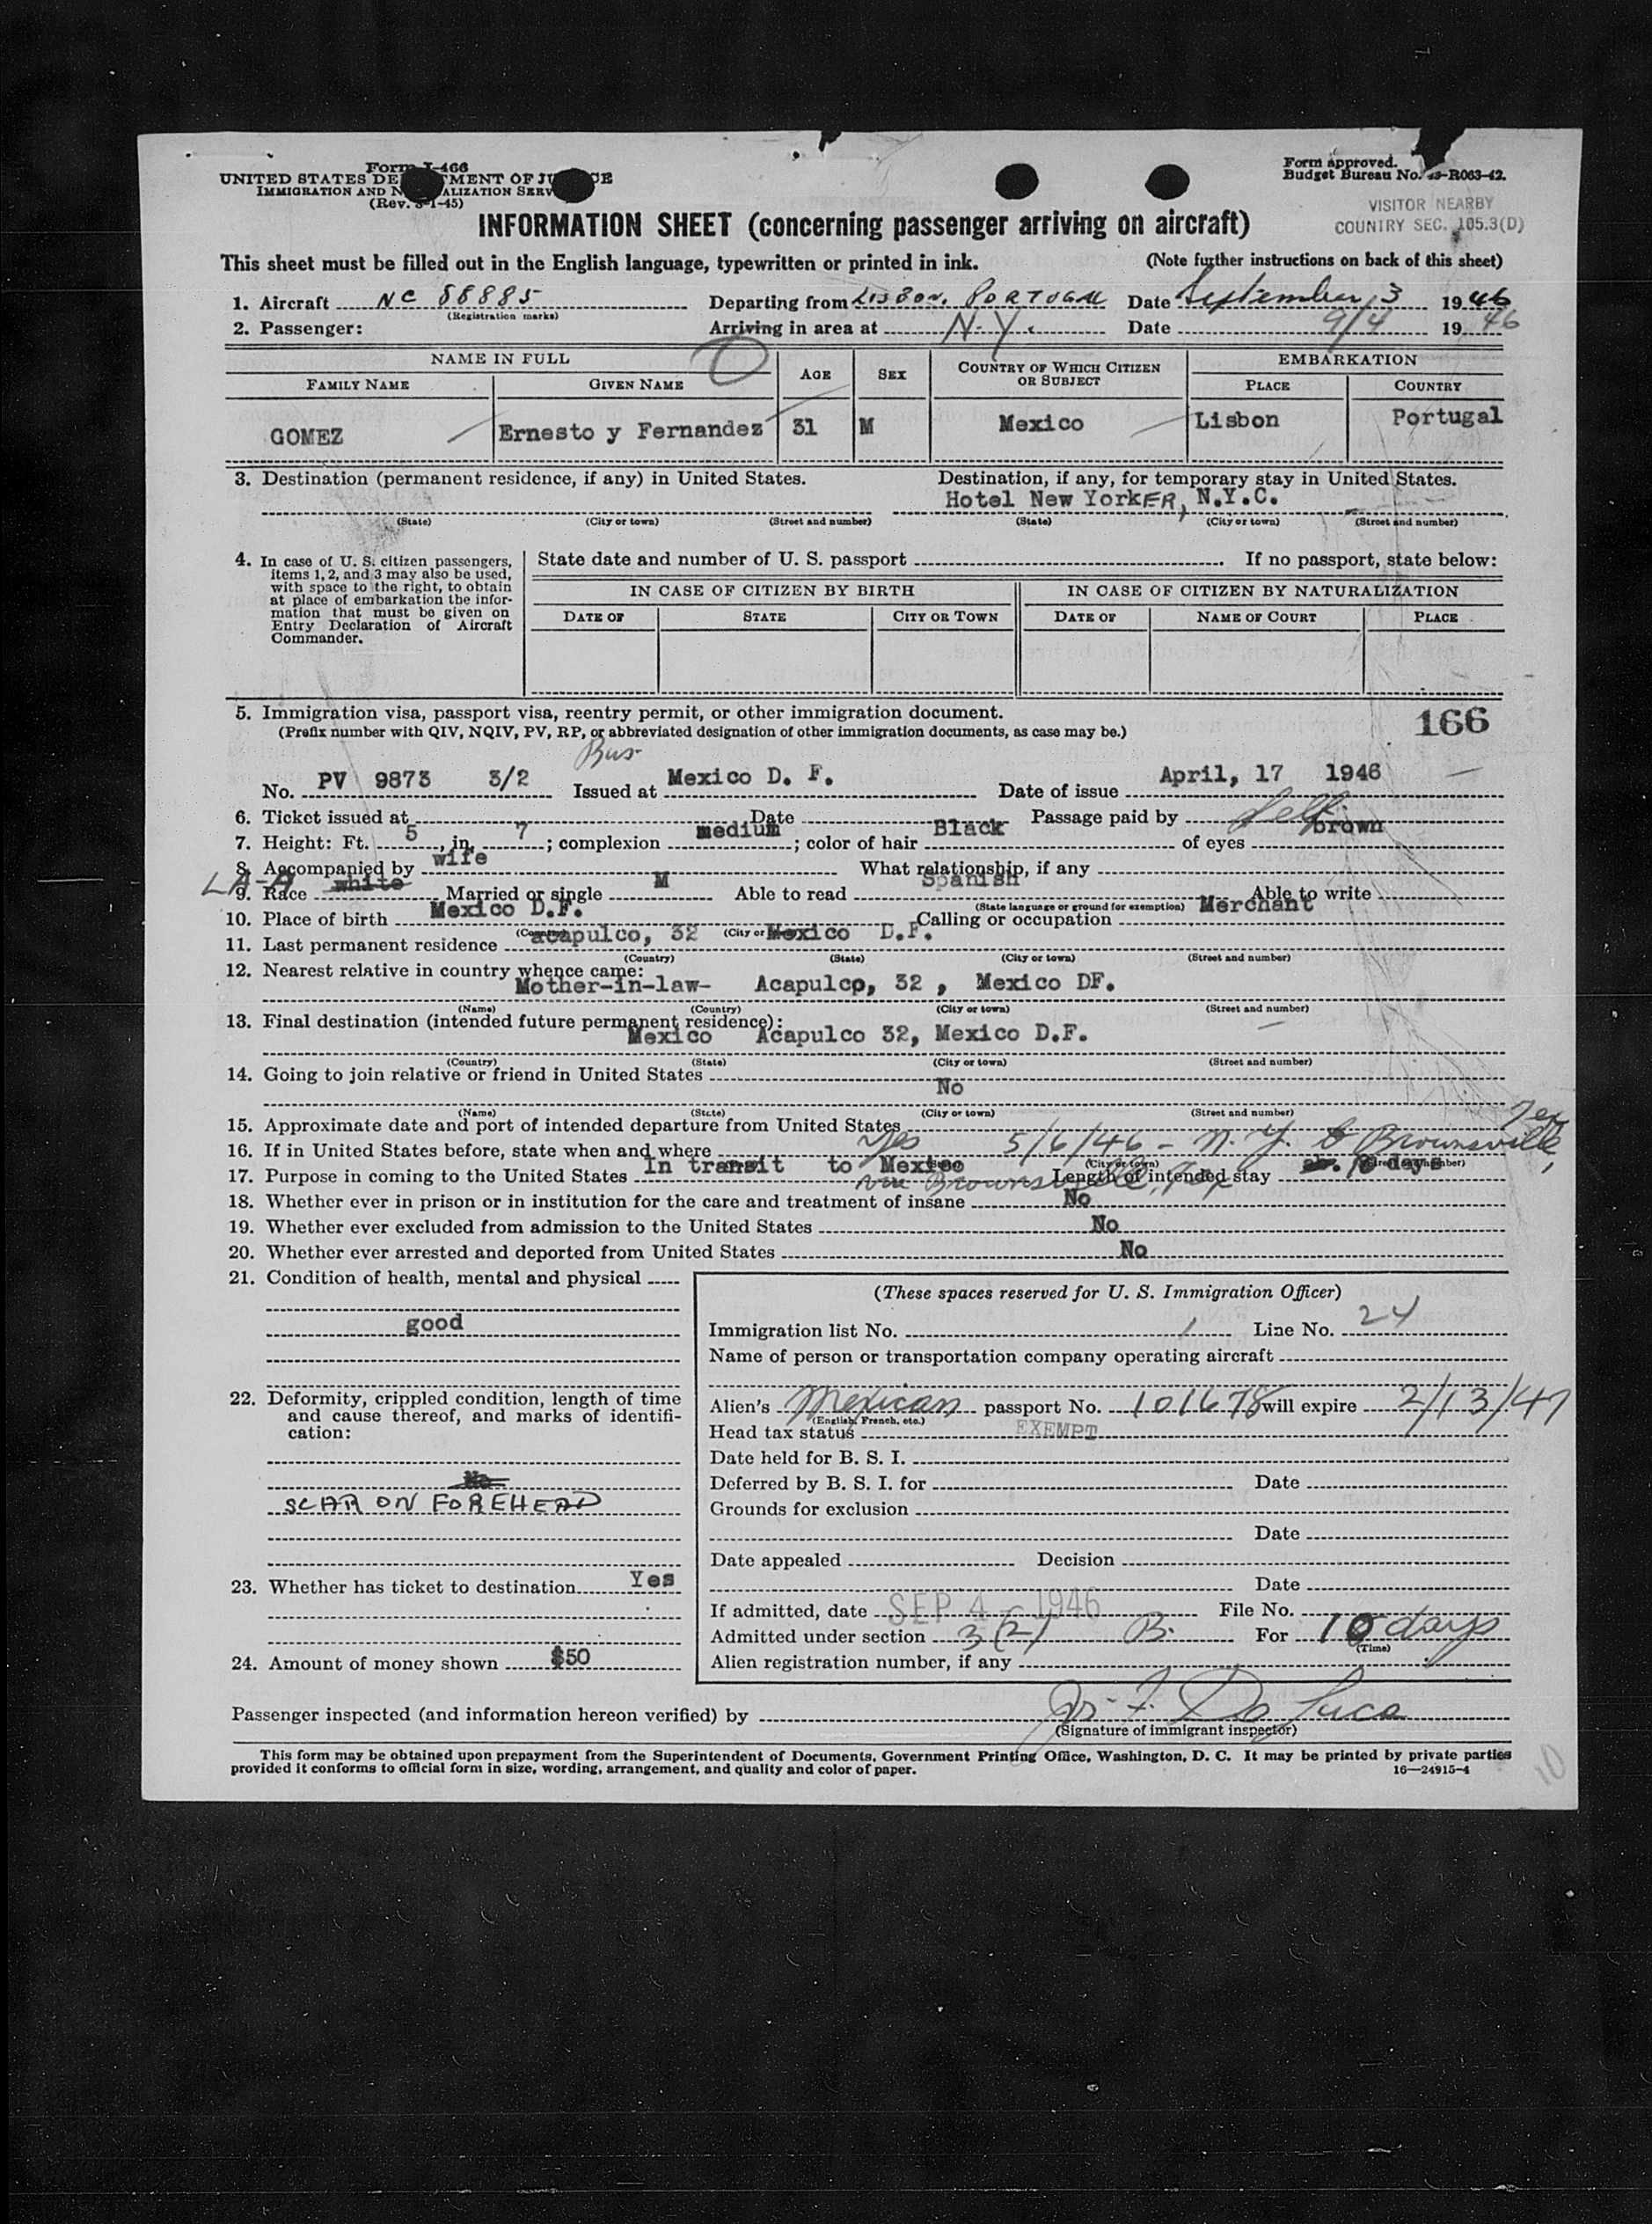 Form I-466
UNITED STATES DE TMENT OF JU CE
IMMIGRATION AND N ALIZATION SERV
(Rev. 3-1-45)
Form approved.
Budget Bureau No. 43-R063-42.
VISITOR NEARBY
COUNTRY SEC. 105.3(D)
INFORMATION SHEET (concerning passenger arriving on aircraft)
This sheet must be filled out in the English language, typewritten or printed in ink. (Note further instructions on back of this sheet)
1. Aircraft NC 88885 Departing from LISBON, PORTUGAL Date September 3 1946
(Registration marks)
2. Passenger: Arriving in area at N.Y. Date 9/4 1946
NAME IN FULL AGE SEX COUNTRY OF WHICH CITIZEN OR SUBJECT EMBARKATION
FAMILY NAME GIVEN NAME PLACE COUNTRY
GOMEZ Ernesto y Fernandez 31 M Mexico Lisbon Portugal
3. Destination (permanent residence, if any) in United States. Destination, if any, for temporary stay in United States.
Hotel New YorkER, N.Y.C.
(State) (City or town) (Street and number) (State) (City or town) (Street and number)
4. In case of U. S. citizen passengers,
items 1, 2, and 3 may also be used,
with space to the right, to obtain
at place of embarkation the infor-
mation that must be given on
Entry Declaration of Aircraft
Commander.
State date and number of U. S. passport If no passport, state below:
IN CASE OF CITIZEN BY BIRTH IN CASE OF CITIZEN BY NATURALIZATION
DATE OF STATE CITY OR TOWN DATE OF NAME OF COURT PLACE
5. Immigration visa, passport visa, reentry permit, or other immigration document. 166
(Prefix number with QIV, NQIV, PV, RP, or abbreviated designation of other immigration documents, as case may be.)
Bus
No. PV 9873 3/2 Issued at Mexico D. F. Date of issue April, 17 1946
6. Ticket issued at Date Passage paid by Self
7. Height: Ft. 5, in. 7; complexion medium; color of hair Black of eyes brown
8. Accompanied by wife What relationship, if any
LA-A
9. Race white Married or single M Able to read Spanish Able to write
(State language or ground for exemption)
10. Place of birth Mexico D.F. Calling or occupation Merchant
(Country) (City or
11. Last permanent residence acapulco, 32 Mexico D.F.
(Country) (State) (City or town) (Street and number)
12. Nearest relative in country whence came:
Mother-in-law- Acapulco, 32 , Mexico DF.
(Name) (Country) (City or town) (Street and number)
13. Final destination (intended future permanent residence):
Mexico Acapulco 32, Mexico D.F.
(Country) (State) (City or town) (Street and number)
14. Going to join relative or friend in United States
No
(Name) (State) (City or town) (Street and number)
15. Approximate date and port of intended departure from United States
16. If in United States before, state when and where Yes 5/6/46 - N.Y. to Brownsville, Tex
(City or town) (Street and number)
17. Purpose in coming to the United States In transit to Mexico Length of intended stay 10 days
via Brownsville, Tex
18. Whether ever in prison or in institution for the care and treatment of insane No
19. Whether ever excluded from admission to the United States No
20. Whether ever arrested and deported from United States No
21. Condition of health, mental and physical
good
22. Deformity, crippled condition, length of time
and cause thereof, and marks of identifi-
cation:
No
SCAR ON FOREHEAD
23. Whether has ticket to destination Yes
24. Amount of money shown $50
(These spaces reserved for U. S. Immigration Officer)
Immigration list No. 1 Line No. 24
Name of person or transportation company operating aircraft
Alien's Mexican passport No. 101678 will expire 2/13/47
(English, French, etc.)
Head tax status EXEMPT
Date held for B. S. I.
Deferred by B. S. I. for Date
Grounds for exclusion
Date
Date appealed Decision
Date
If admitted, date SEP 4 - 1946 File No.
Admitted under section 3(2) B. For 10 days
(Time)
Alien registration number, if any
Passenger inspected (and information hereon verified) by
(Signature of immigrant inspector)
This form may be obtained upon prepayment from the Superintendent of Documents, Government Printing Office, Washington, D. C. It may be printed by private parties
provided it conforms to official form in size, wording, arrangement, and quality and color of paper. 16—24915-4
10